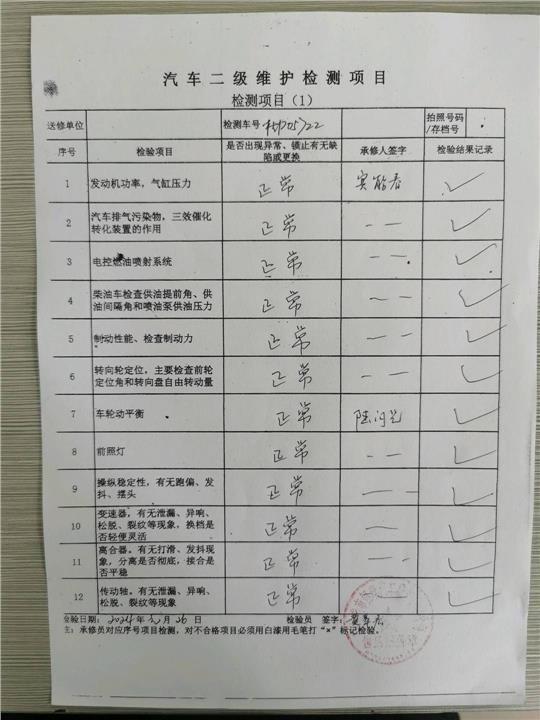 汽车二级维护检测项目
检测项目(1)
送修单位 检测车号 拍照号码/存档号
序号 检验项目 是否出现异常、锁止有无缺陷或更换 承修人签字 检验结果记录
1 发动机功率，气缸压力 正常 ✓
2 汽车排气污染物，三效催化转化装置的作用 正常 — — ✓
3 电控燃油喷射系统 正常 — — ✓
4 柴油车检查供油提前角、供油间隔角和喷油泵供油压力 正常 — — ✓
5 制动性能、检查制动力 正常 — — ✓
6 转向轮定位，主要检查前轮定位角和转向盘自由转动量 正常 — — ✓
7 车轮动平衡 正常 ✓
8 前照灯 正常 — — ✓
9 操纵稳定性，有无跑偏、发抖、摆头 正常 — — ✓
10 变速器，有无泄漏、异响、松脱、裂纹等现象，换档是否轻便灵活 正常 — — ✓
11 离合器，有无打滑、发抖现象，分离是否彻底，接合是否平稳 正常 — — ✓
12 传动轴，有无泄漏、异响、松脱、裂纹等现象 正常 — — ✓
检验日期：2024年 月26日 检验员 签字：
主：承修员对应序号项目检测，对不合格项目必须用白漆用毛笔打"×"标记检验。